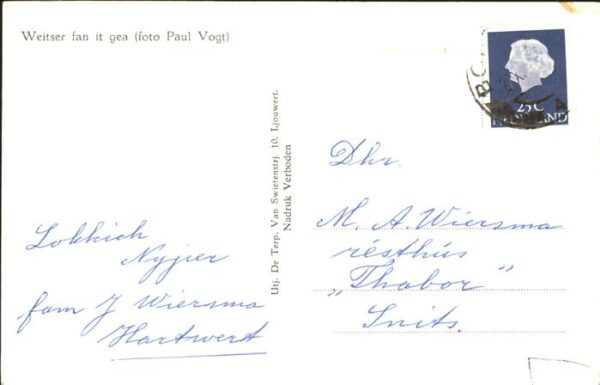 Weitser fan it gea (foto Paul Vogt)
25c
NEDERLAND
Utj. De Terp, Van Swietenstrj. 10, Ljouwert.
Nadruk Verboden
Lokkich
Nyjier
fam J Wiersma
Hartwert
Dhr.
M. A. Wiersma
résthús
„Thabor"
Snits.